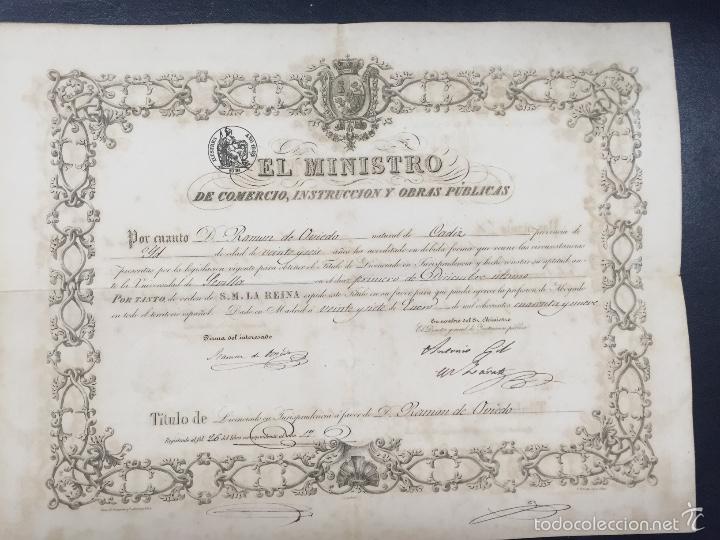 EL MINISTRO
DE COMERCIO, INSTRUCCION Y OBRAS PÚBLICAS
Por cuanto D. Ramon de Oviedo natural de Cadiz provincia de
de edad de veinte y seis años ha acreditado en debida forma que reune las circunstancias
prescritas por la legislacion vigente para obtener el Titulo de Licenciado en Jurisprudencia y hecho constar su aptitud an-
te la Universidad de Sevilla en el dia primero de Diciembre ultimo
POR TANTO, de orden de S. M. LA REINA expido este Titulo en su favor para que pueda ejercer la profesion de Abogado
en todo el territorio español. Dado en Madrid á veinte y siete de Enero de mil ochocientos cuarenta y nueve
En nombre del Sr. Ministro
Firma del interesado
El Director general de Instruccion publica
Ramon de Oviedo
Antonio Gil
de Zarate
Titulo de Licenciado en Jurisprudencia á favor de D. Ramon de Oviedo
Registrado al fol. 26 del libro
todocoleccion.net